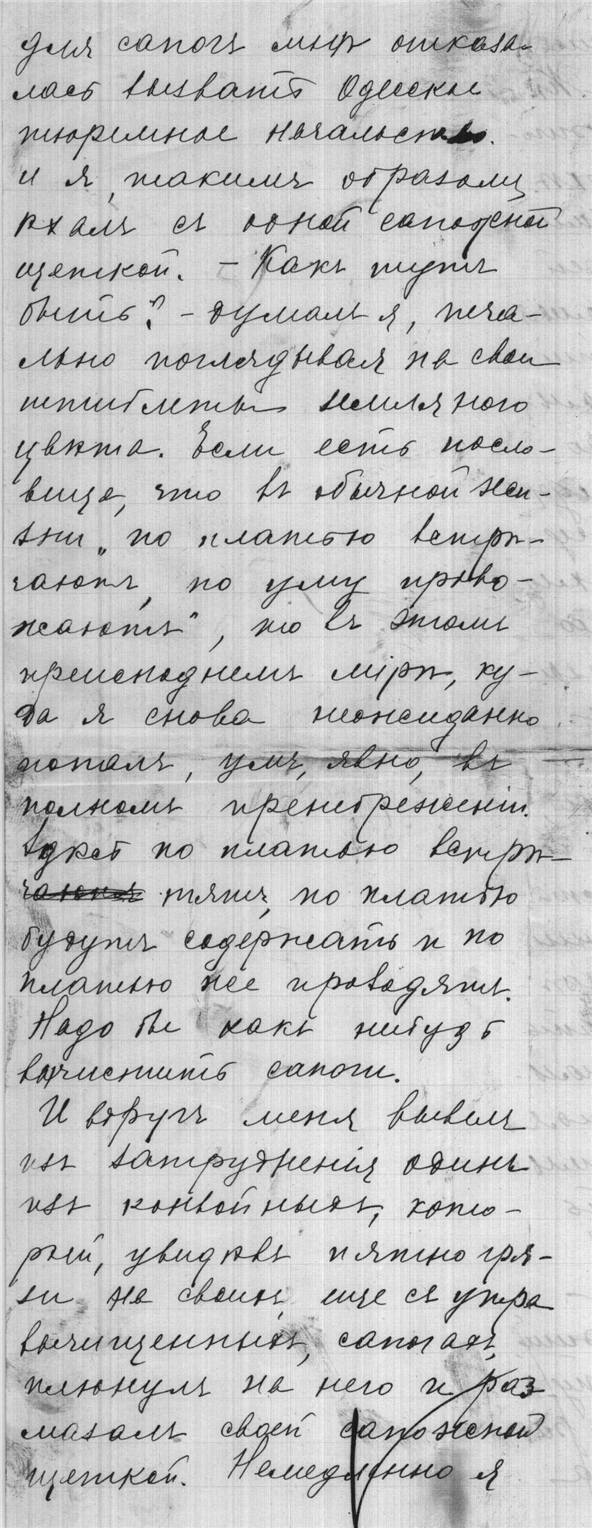 для сапогъ мнѣ отказа-
лось выдать Одесское
тюремное начальство.
и я, такимъ образомъ,
ѣхалъ съ одной сапожной
щеткой. – Какъ тутъ
быть? – думалъ я, печа-
льно поглядывая на свои
штиблеты землянаго
цвѣта. Если есть посло-
вица, что въ обычной жи-
зни „по платью встрѣ-
чаютъ, по уму прово-
жаютъ", то въ этомъ
преисподнемъ мірѣ, ку-
да я снова неожиданно
попалъ, умъ, явно, въ
полномъ пренебреженіи.
Здѣсь по платью встрѣ-
тятъ, по платью
будутъ содержать и по
платью же проводятъ.
Надо бы какъ нибудь
вычистить сапоги.
И вдругъ меня вывелъ
изъ затрудненія одинъ
изъ конвойныхъ, кото-
рый, увидѣвъ пятно гря-
зи на своихъ, еще съ утра
вычищенныхъ, сапогахъ,
плюнулъ на него и раз
мазалъ своей сапожной
щеткой. Немедленно я